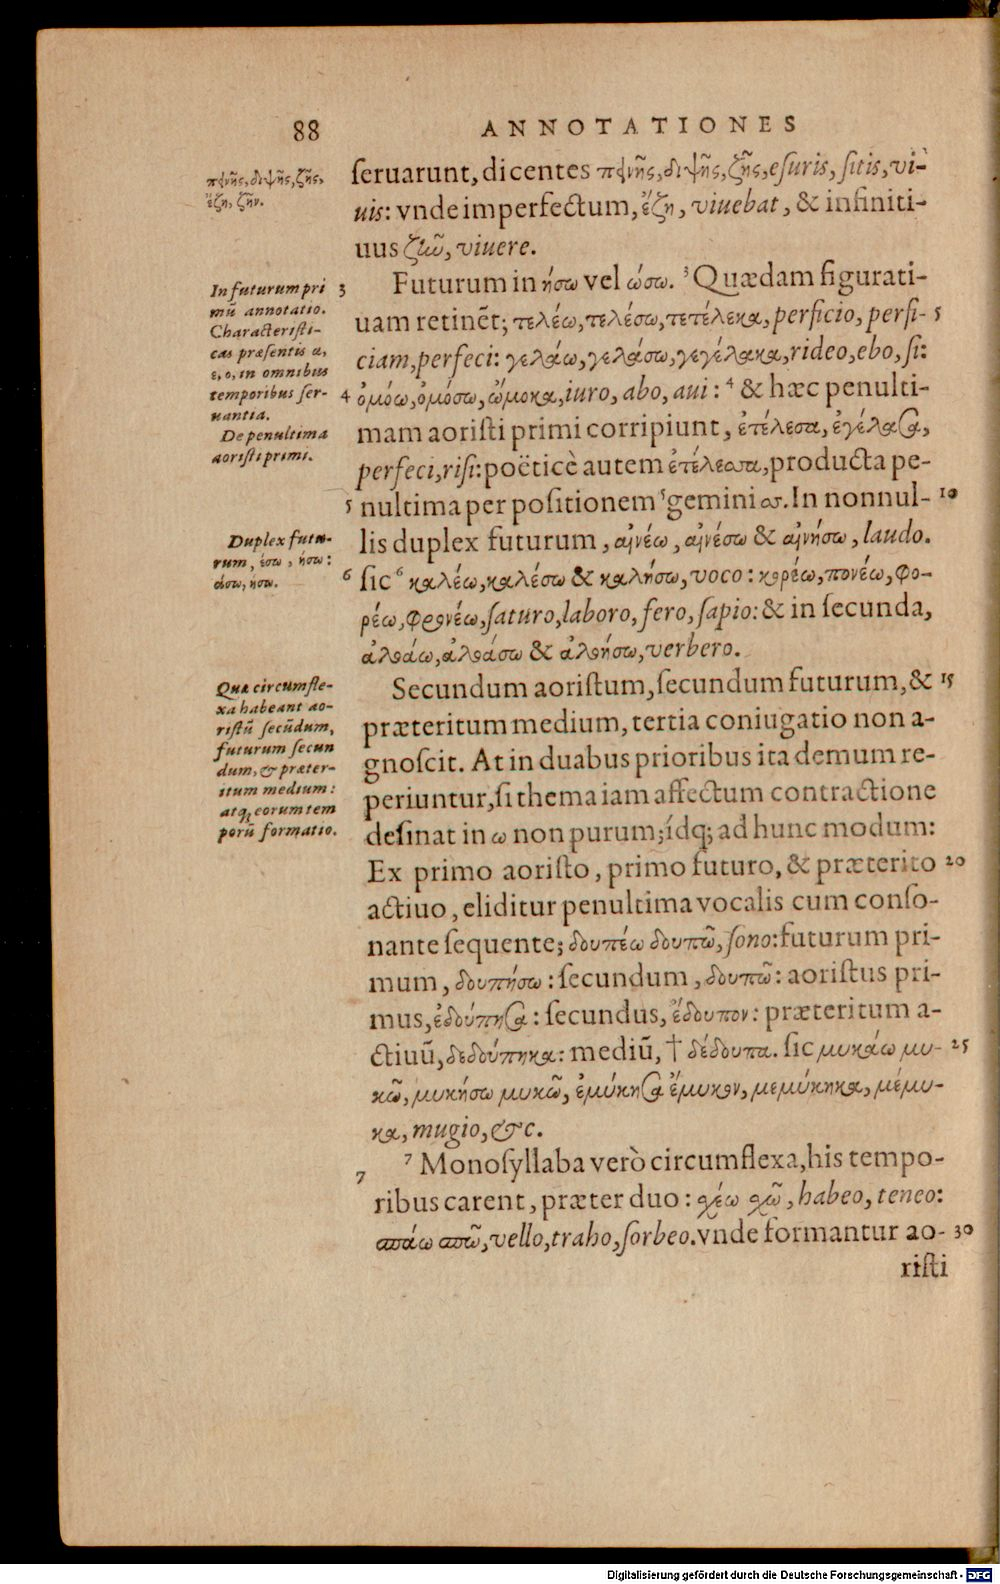 88 ANNOTATIONES
πεινῆς, διψῆς, ζῆς,
ἔζη, ζῆν.
ſeruarunt, dicentes πεινῆς, διψῆς, ζῆς, eſuris, ſitis, vi-
uis: vnde imperfectum, ἔζη, viuebat, & infiniti-
uus ζῆν, viuere.
In futurum pri
mũ annotatio.
Characteriſti-
cas præſentis α,
ε, ο, in omnibus
temporibus ſer-
uantia.
De penultima
aoriſti primi.
3 Futurum in ήσω vel ώσω. ³ Quædam figurati-
uam retinẽt; τελέω, τελέσω, τετέλεκα, perficio, perfi- 5
ciam, perfeci: γελάω, γελάσω, γεγέλακα, rideo, ebo, ſi:
4 ὀμόω, ὀμόσω, ὤμοκα, iuro, abo, aui: ⁴ & hæc penulti-
mam aoriſti primi corripiunt, ἐτέλεσα, ἐγέλασα,
perfeci, riſi: poëticè autem ἐτέλεσσα, producta pe-
5 nultima per poſitionem ⁵ gemini σσ. In nonnul- 10
Duplex futu-
rum, έσω, ήσω:
άσω, ήσω.
lis duplex futurum, αἰνέω, αἰνέσω & αἰνήσω, laudo.
6 ſic ⁶ καλέω, καλέσω & καλήσω, voco: κορέω, πονέω, φο-
ρέω, φρονέω, ſaturo, laboro, fero, ſapio: & in ſecunda,
ἀλοάω, ἀλοάσω & ἀλοήσω, verbero.
Quæ circumfle-
xa habeant ao-
riſtũ ſecũdum,
futurum ſecun
dum, & præter-
itum medium:
atq; eorum tem
porũ formatio.
Secundum aoriſtum, ſecundum futurum, & 15
præteritum medium, tertia coniugatio non a-
gnoſcit. At in duabus prioribus ita demum re-
periuntur, ſi thema iam affectum contractione
deſinat in ω non purum; ídq; ad hunc modum:
Ex primo aoriſto, primo futuro, & præterito 20
actiuo, eliditur penultima vocalis cum conſo-
nante ſequente; δουπέω δουπῶ, ſono: futurum pri-
mum, δουπήσω: ſecundum, δουπῶ: aoriſtus pri-
mus, ἐδούπησα: ſecundus, ἔδουπον: præteritum a-
ctiuũ, δεδούπηκα: mediũ, † δέδουπα. ſic μυκάω μυ- 25
κῶ, μυκήσω μυκῶ, ἐμύκησα ἔμυκον, μεμύκηκα, μέμυ-
κα, mugio, &c.
7 ⁷ Monoſyllaba verò circumflexa, his tempo-
ribus carent, præter duo: σχέω σχῶ, habeo, teneo:
σπάω σπῶ, vello, traho, ſorbeo. vnde formantur ao- 30
riſti
Digitalisierung gefördert durch die Deutsche Forschungsgemeinschaft - DFG